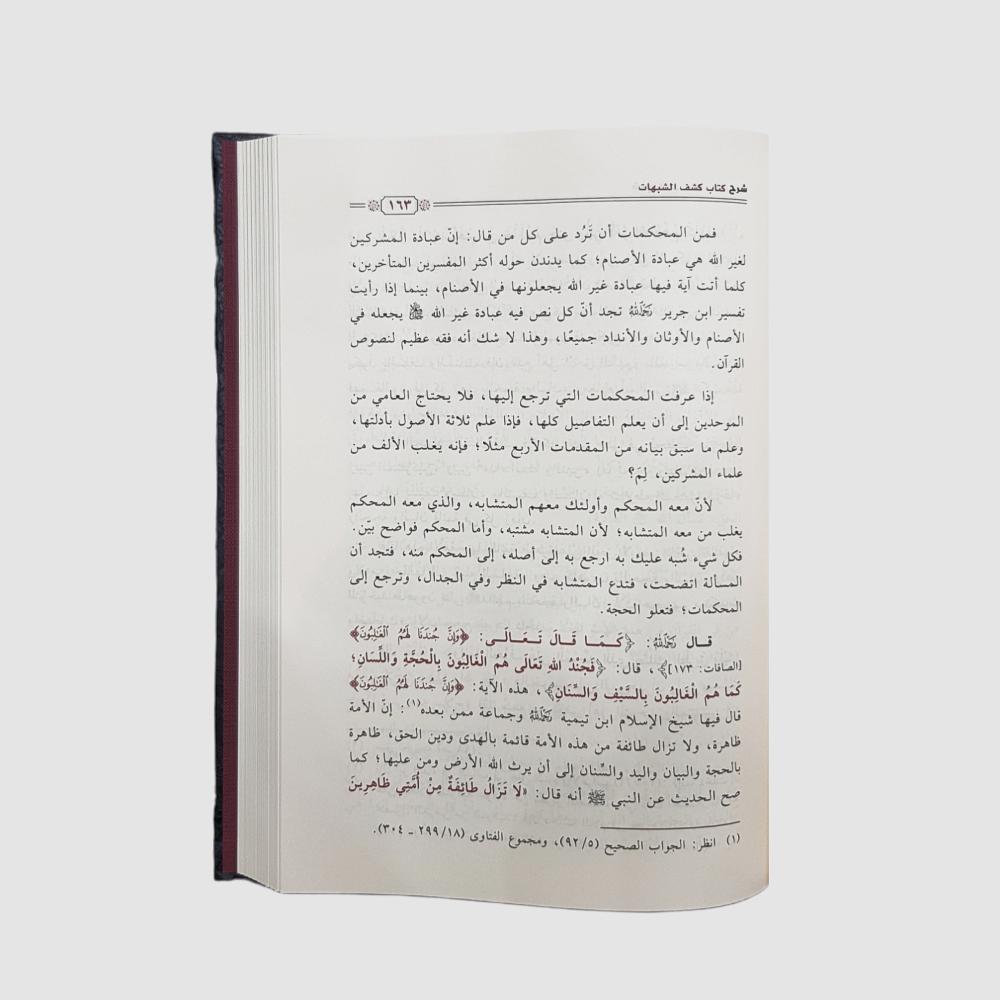 شرح كتاب كشف الشبهات
١٦٣
فمن المحكمات أن تَرُد على كل من قال: إنّ عبادة المشركين
لغير الله هي عبادة الأصنام؛ كما يدندن حوله أكثر المفسرين المتأخرين،
كلما أتت آية فيها عبادة غير الله يجعلونها في الأصنام، بينما إذا رأيت
تفسير ابن جرير رَحِمَهُ اللَّهُ تجد أنّ كل نص فيه عبادة غير الله ﷻ يجعله في
الأصنام والأوثان والأنداد جميعًا، وهذا لا شك أنه فقه عظيم لنصوص
القرآن.
إذا عرفت المحكمات التي ترجع إليها، فلا يحتاج العامي من
الموحدين إلى أن يعلم التفاصيل كلها، فإذا علم ثلاثة الأصول بأدلتها،
وعلم ما سبق بيانه من المقدمات الأربع مثلًا؛ فإنه يغلب الألف من
علماء المشركين، لِمَ؟
لأنّ معه المحكم وأولئك معهم المتشابه، والذي معه المحكم
يغلب من معه المتشابه؛ لأن المتشابه مشتبه، وأما المحكم فواضح بيّن.
فكل شيء شُبه عليك به ارجع به إلى أصله، إلى المحكم منه، فتجد أن
المسألة اتضحت، فتدع المتشابه في النظر وفي الجدال، وترجع إلى
المحكمات؛ فتعلو الحجة.
قال رَحِمَهُ اللَّهُ: ﴿كَمَا قَالَ تَعَالَى: ﴿وَإِنَّ جُندَنَا لَهُمُ ٱلْغَٰلِبُونَ﴾
[الصافات: ١٧٣]﴾، قال: ﴿فَجُنْدُ اللهِ تَعَالَى هُمُ الْغَالِبُونَ بِالْحُجَّةِ وَاللِّسَانِ؛
كَمَا هُمُ الْغَالِبُونَ بِالسَّيْفِ وَالسِّنَانِ﴾، هذه الآية: ﴿وَإِنَّ جُندَنَا لَهُمُ ٱلْغَٰلِبُونَ﴾
قال فيها شيخ الإسلام ابن تيمية رَحِمَهُ اللَّهُ وجماعة ممن بعده(١): إنّ الأمة
ظاهرة، ولا تزال طائفة من هذه الأمة قائمة بالهدى ودين الحق، ظاهرة
بالحجة والبيان واليد والسِّنان إلى أن يرث الله الأرض ومن عليها؛ كما
صح الحديث عن النبي ﷺ أنه قال: «لَا تَزَالُ طَائِفَةٌ مِنْ أُمَّتِي ظَاهِرِينَ
(١) انظر: الجواب الصحيح (٩٢/٥)، ومجموع الفتاوى (٢٩٩/١٨ ـ ٣٠٤).